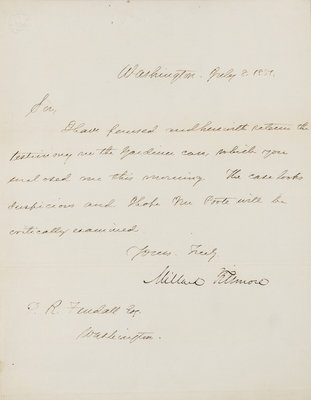 Washington. July 8. 1851.
Sir,
I have perused and herewith return the
testimony in the Gardiner case, which you
enclosed me this morning. The case looks
suspicious and I hope will be
critically examined.
Yours Truly,
Millard Fillmore
P. R. Fendall Esq.
Washington.